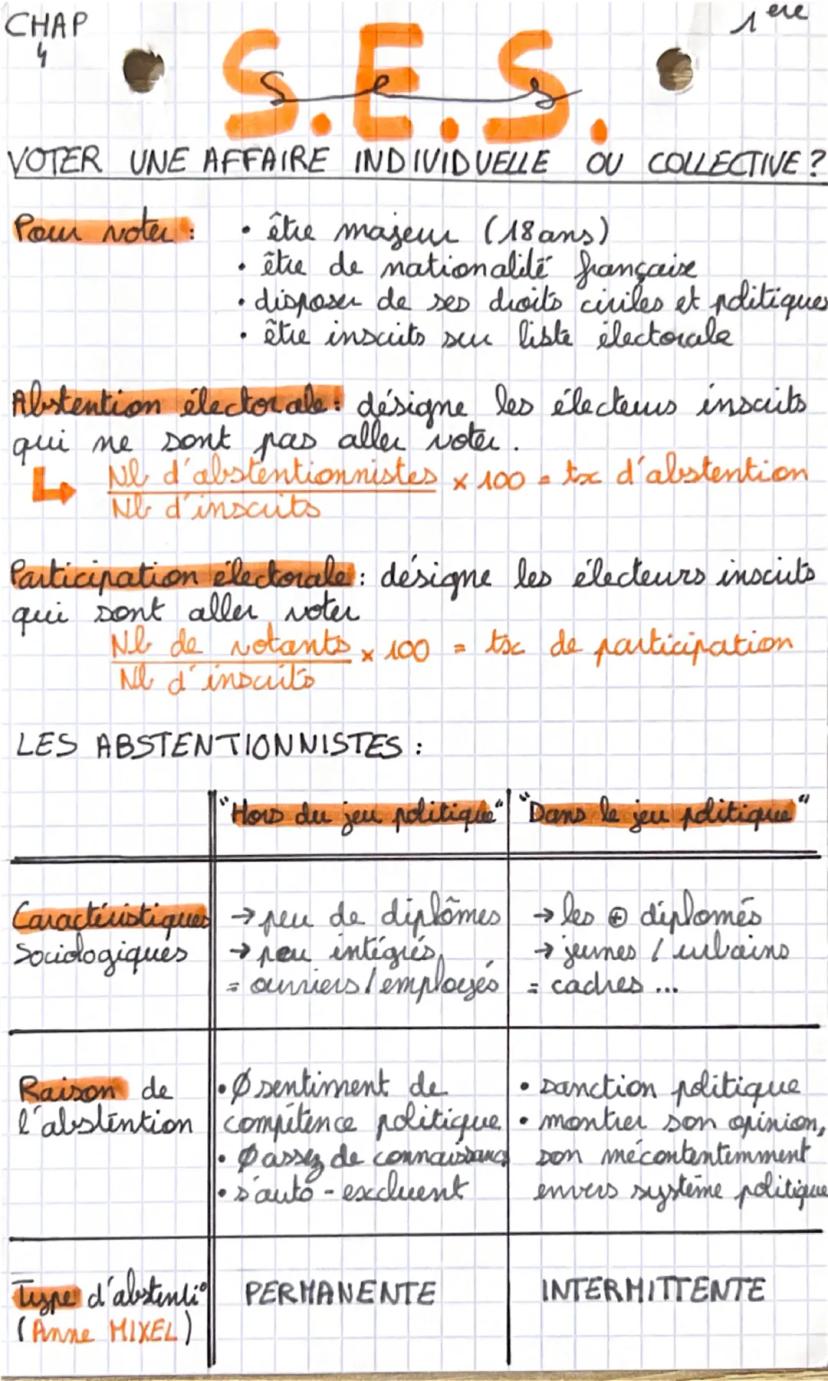 CHAP 4
1ere
S.E.S.
ses
VOTER UNE AFFAIRE INDIVIDUELLE OU COLLECTIVE ?
Pour voter :
• être majeur (18 ans)
• être de nationalité française
• disposer de ses droits civiles et politiques
• être inscrits sur liste électorale
Abstention électorale : désigne les électeurs inscrits
qui ne sont pas aller voter.
Nb d'abstentionnistes x 100 = tx d'abstention
Nb d'inscrits
Participation électorale : désigne les électeurs inscrits
qui sont aller voter
Nb de votants x 100 = tx de participation
Nb d'inscrits
LES ABSTENTIONNISTES :
"Hors du jeu politique" "Dans le jeu politique"
Caractéristiques
Sociologiques
→ peu de diplômes
→ peu intégrés
= ouvriers / employés
→ les ⊕ diplomés
→ jeunes / urbains
= cadres ...
Raison de
l'abstention
• Ø sentiment de
compétence politique
• Ø assez de connaissance
• s'auto-excluent
• sanction politique
• montrer son opinion,
son mécontentemment
envers système politique
Type d'abstenti°
(Anne MIXEL)
PERMANENTE
INTERMITTENTE